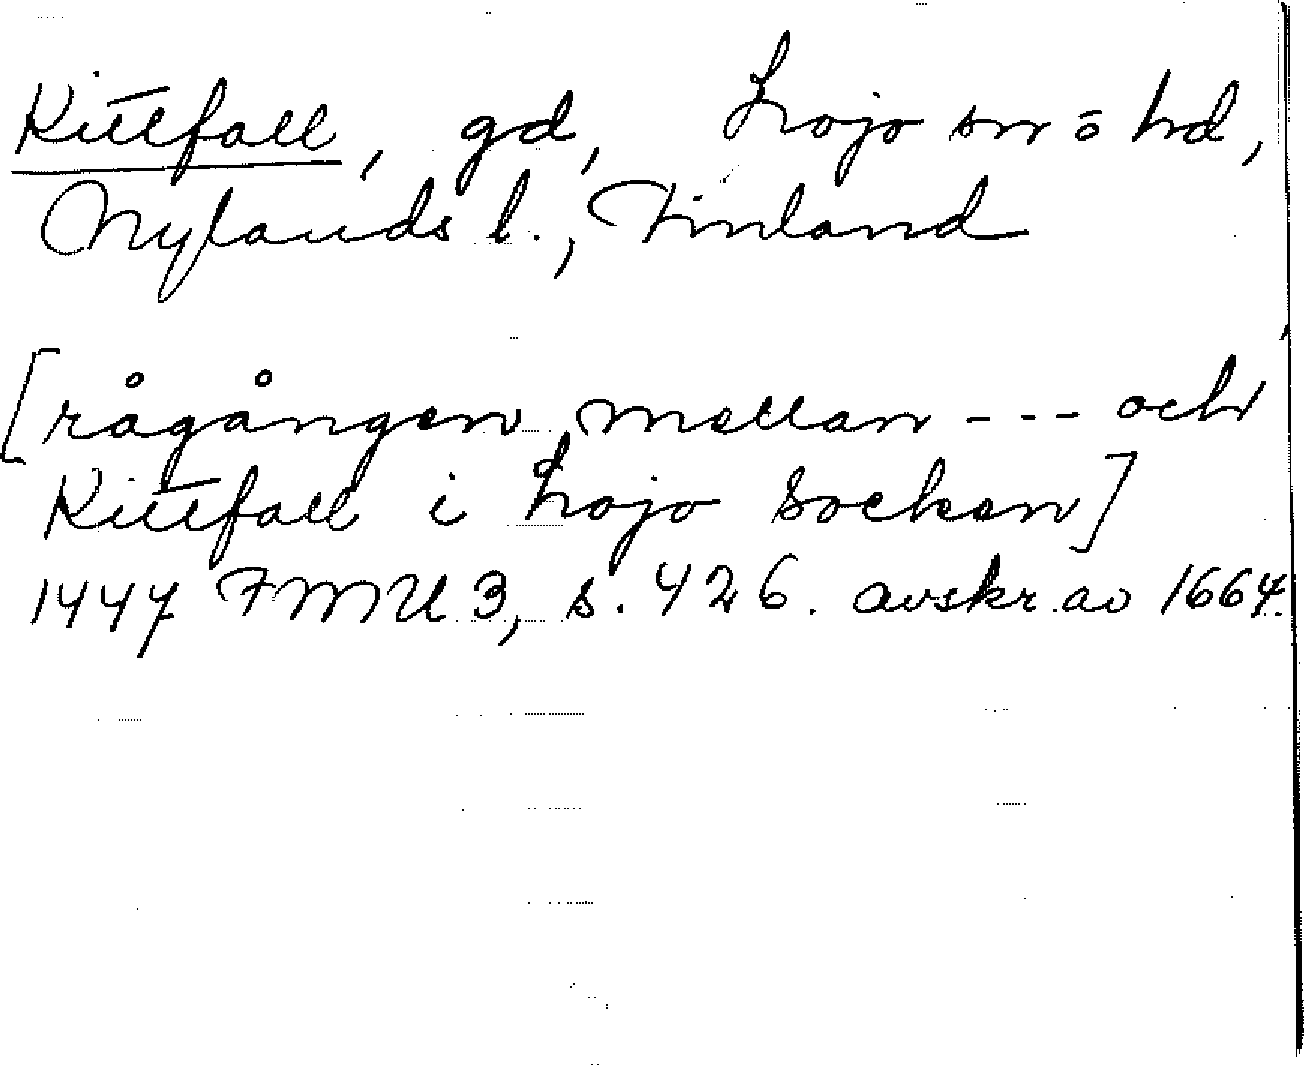 Kittfall, gd, Lojo sn ō hd,
Nylands l., Finland
[rågången mellan --- och
Kittfall i Lojo socken]
1447 FMU 3, s. 426. avskr. av 1664.